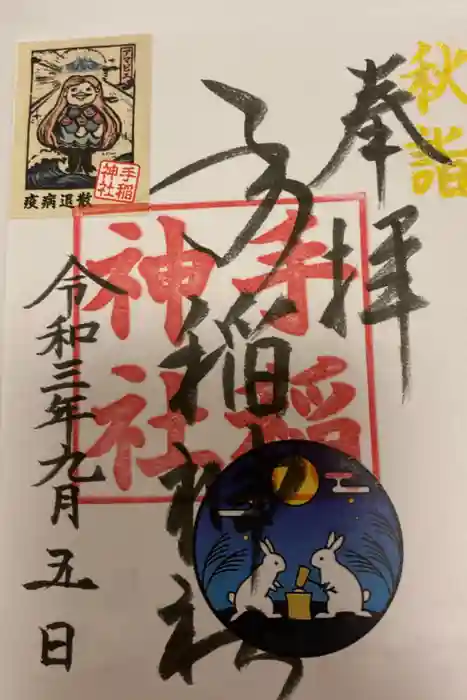 秋詣
奉拝
手稲神社
手稲
神社
アマビエ
手稲
神社
疫病退散
令和三年九月五日